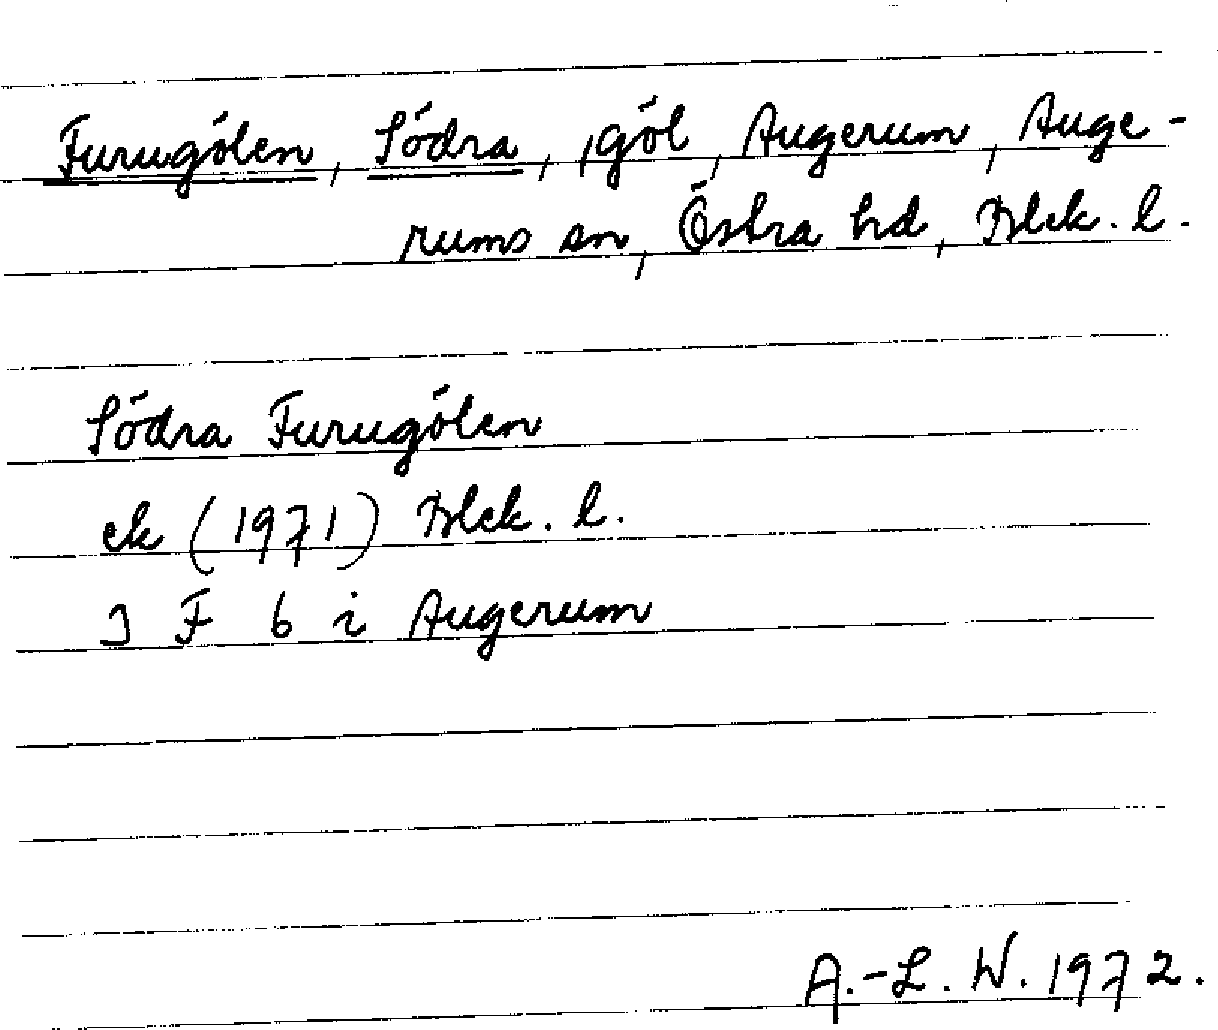 Furugölen, Södra, göl, Augerum, Auge-
rums sn, Östra hd, Blek. l.
Södra Furugölen
ek (1971) Blek. l.
3 F 6 i Augerum
A.-L. W. 1972.